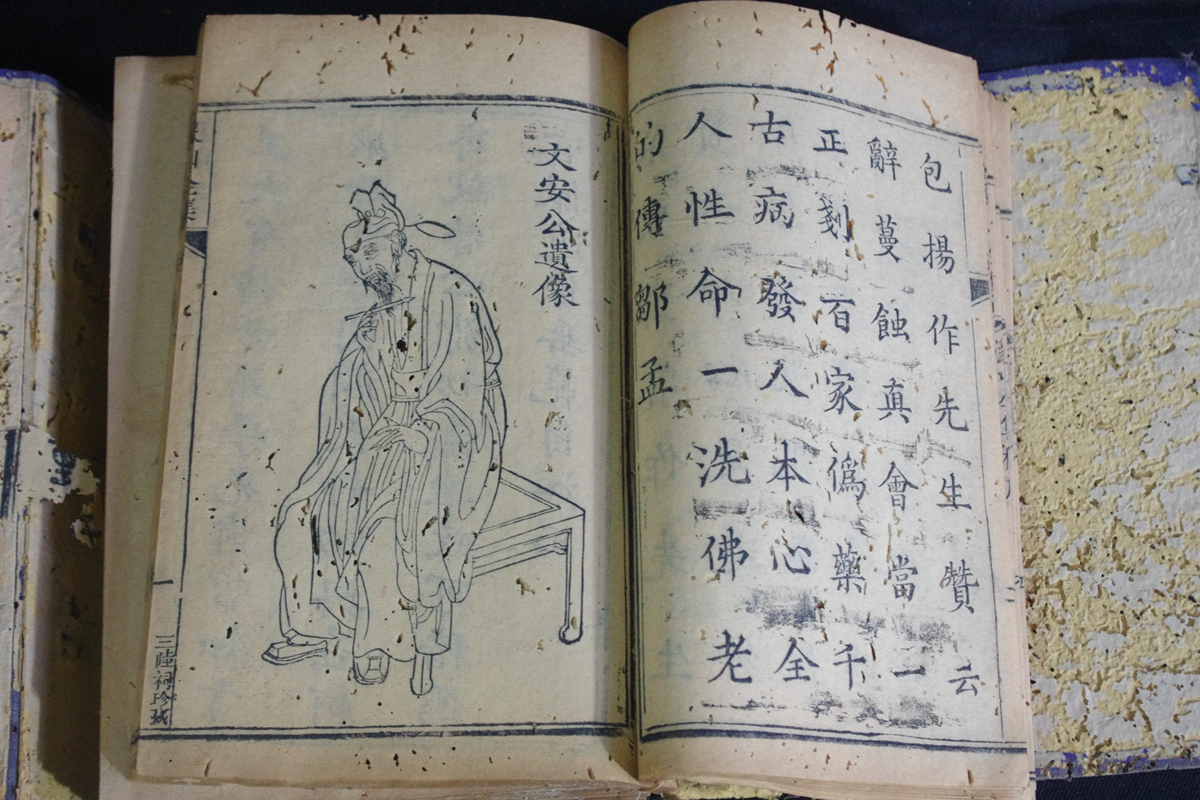 包揚作先生贊云
辭蔓蝕真會當一
正剗百家僞藥千
古病發人本心全
人性命一洗佛老
的傳鄒孟
文安公遺像
一
三陸祠珍藏